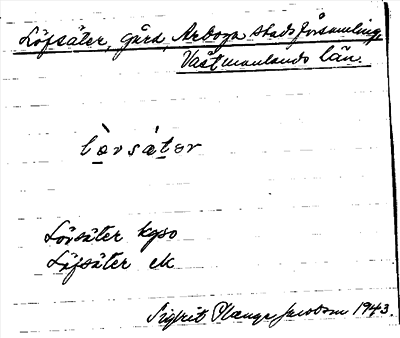 Löfsäter, gård, Arboga stadsförsamling
Västmanlands län.
lèvsätər
Lövsäter kgso
Löfsäter ek
Sigfrid Plange Jacobson 1943.